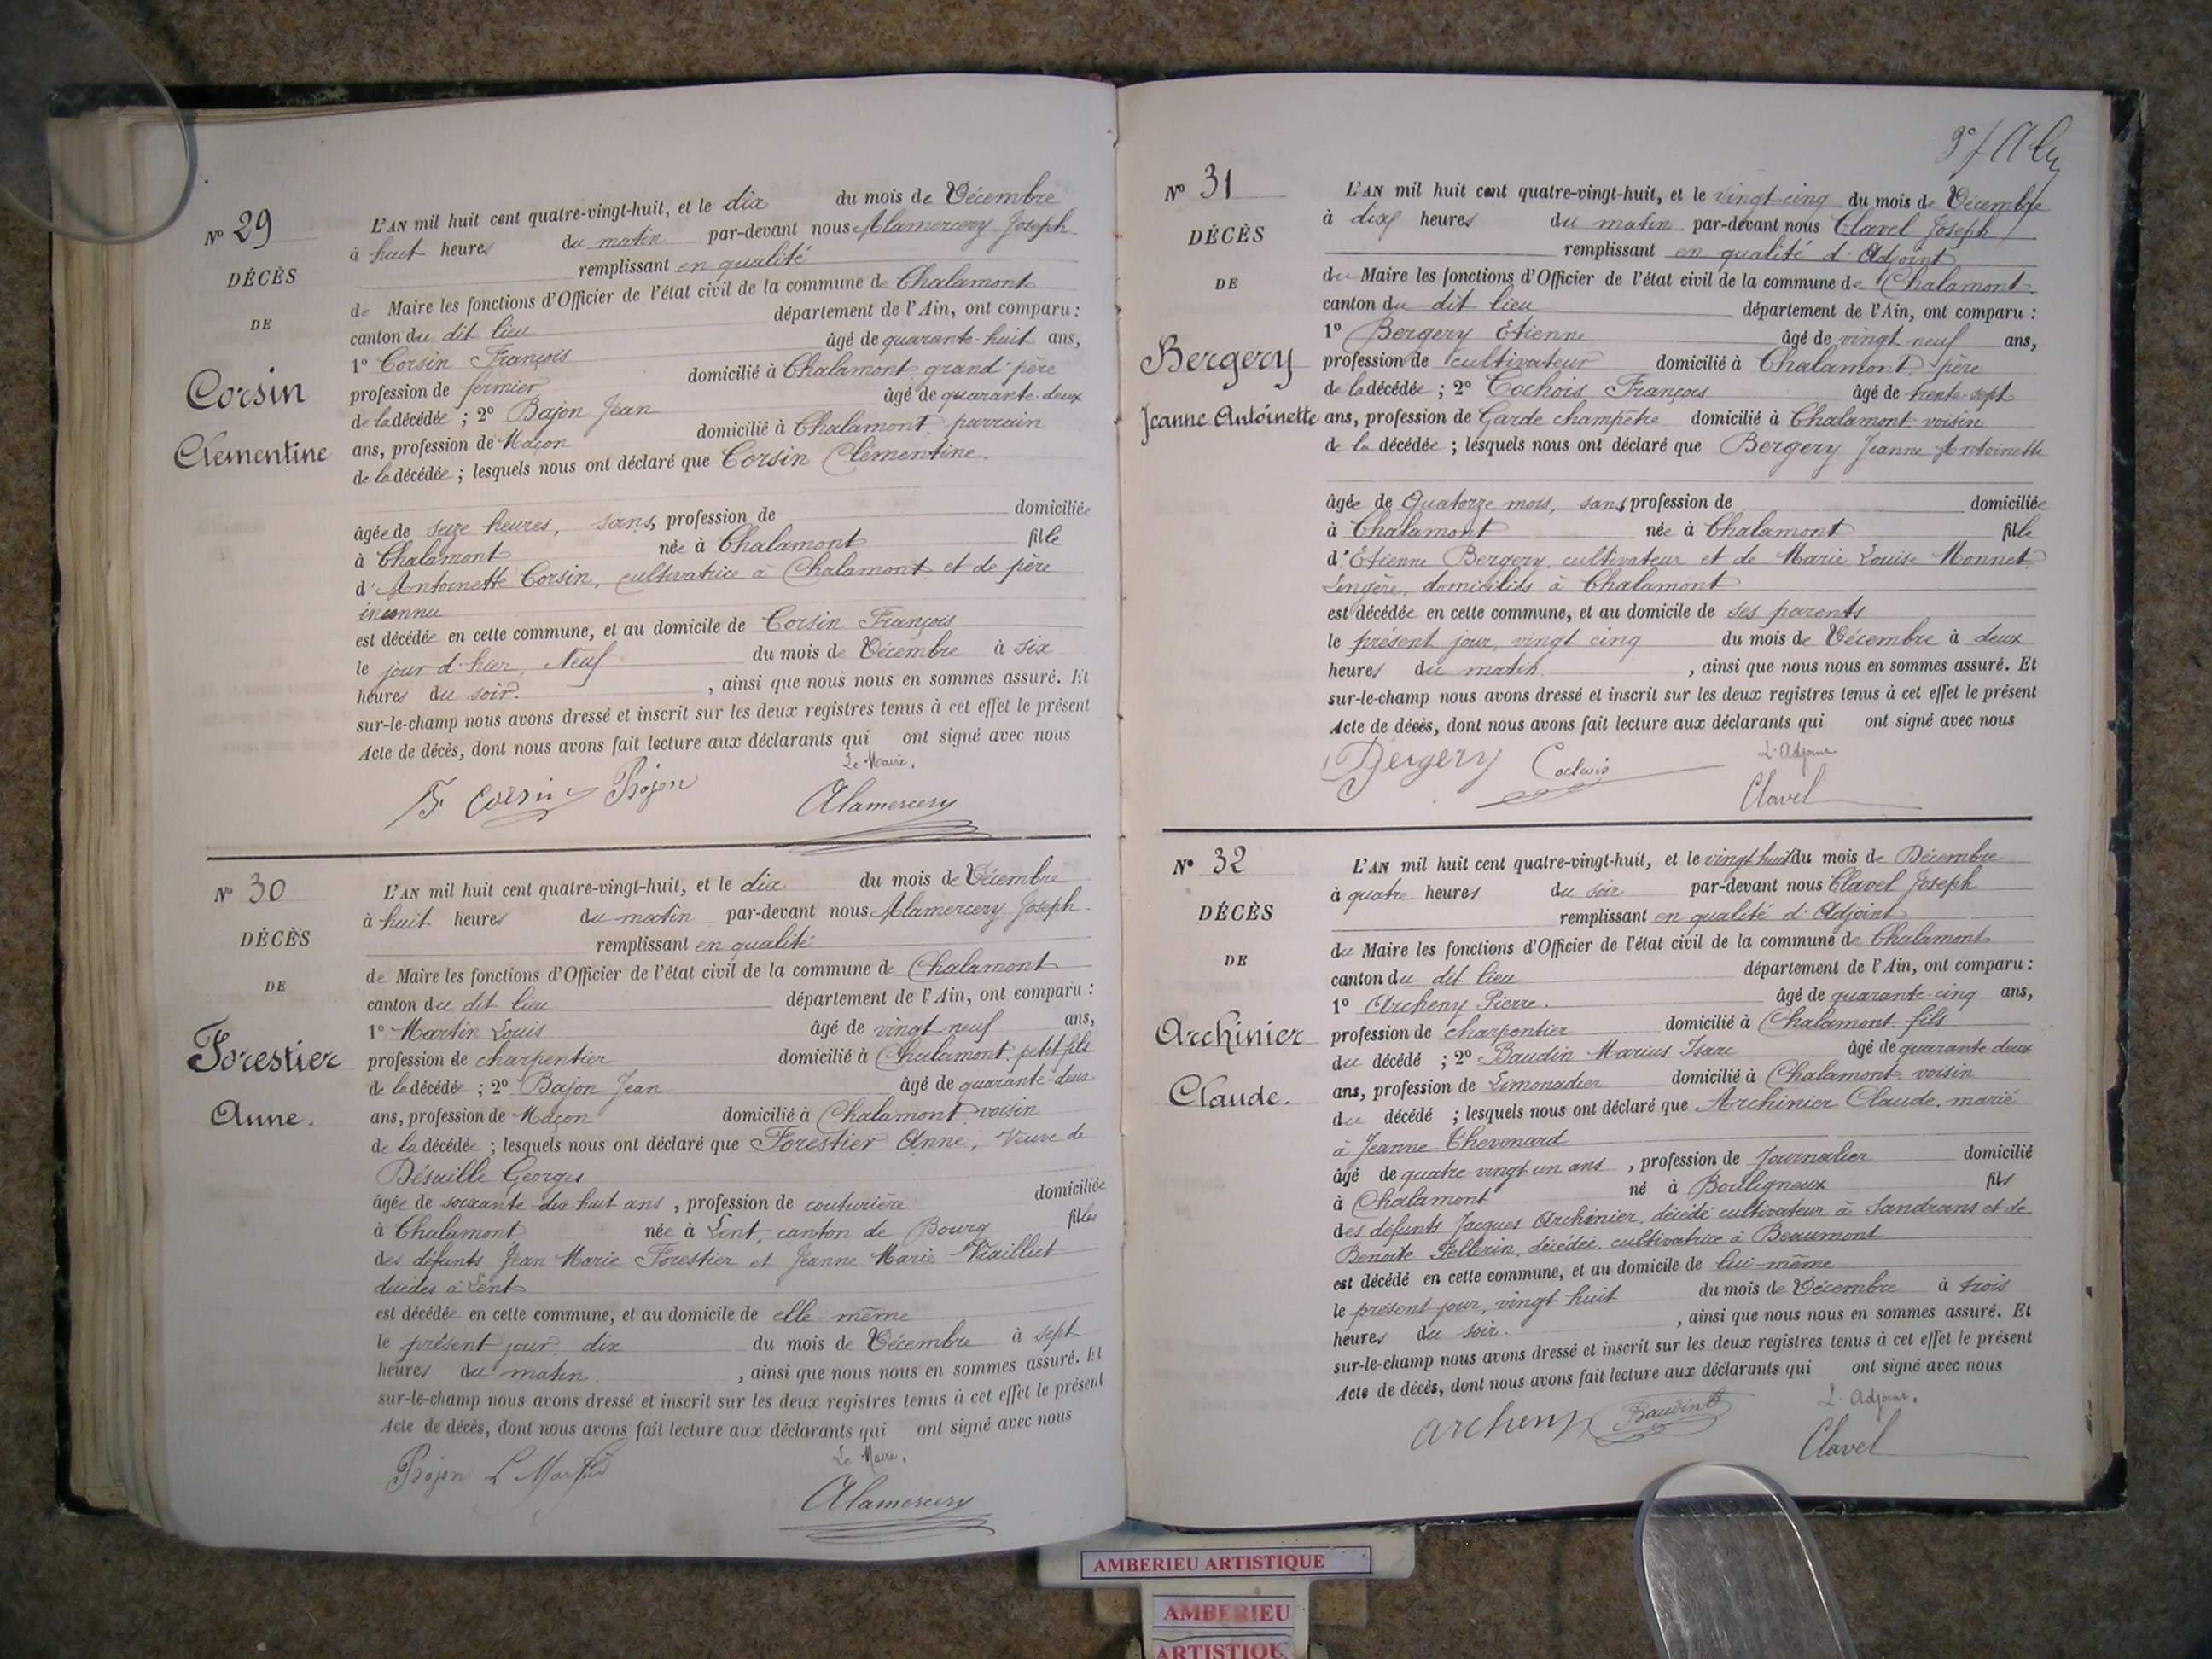 N° 29
DÉCÈS
DE
Corsin
Clémentine
L'AN mil huit cent quatre-vingt-huit, et le dix du mois de Décembre
à huit heures du matin par-devant nous Alamercery Joseph
remplissant en qualité
de Maire les fonctions d'Officier de l'état civil de la commune de Chalamont
canton du dit lieu département de l'Ain, ont comparu :
1° Corsin François âgé de quarante-huit ans,
profession de fermier domicilié à Chalamont grand'père
de la décédée ; 2° Bajon Jean âgé de quarante-deux
ans, profession de Maçon domicilié à Chalamont, parrain
de la décédée ; lesquels nous ont déclaré que Corsin Clémentine.
âgée de seize heures, sans profession de domiciliée
à Chalamont née à Chalamont fille
d'Antoinette Corsin, cultivatrice à Chalamont et de père
inconnu
est décédée en cette commune, et au domicile de Corsin François
le jour d'hier, Neuf du mois de Décembre à six
heures du soir. , ainsi que nous nous en sommes assuré. Et
sur-le-champ nous avons dressé et inscrit sur les deux registres tenus à cet effet le présent
Acte de décès, dont nous avons fait lecture aux déclarants qui ont signé avec nous
Le Maire,
F Corsin Bajon Alamercery
N° 30
DÉCÈS
DE
Forestier
Anne.
L'AN mil huit cent quatre-vingt-huit, et le dix du mois de Décembre
à huit heures du matin par-devant nous Alamercery Joseph
remplissant en qualité
de Maire les fonctions d'Officier de l'état civil de la commune de Chalamont
canton du dit lieu département de l'Ain, ont comparu :
1° Martin Louis âgé de vingt-neuf ans,
profession de charpentier domicilié à Chalamont, petit fils
de la décédée ; 2° Bajon Jean âgé de quarante-deux
ans, profession de Maçon domicilié à Chalamont, voisin
de la décédée ; lesquels nous ont déclaré que Forestier Anne, Veuve de
Désuille Georges
âgée de soixante-dix huit ans , profession de couturière domiciliée
à Chalamont née à Lent, canton de Bourg filles
des défunts Jean Marie Forestier et Jeanne Marie Viaillet
décédés à Lent
est décédée en cette commune, et au domicile de elle-même
le présent jour, dix du mois de Décembre à sept
heures du matin. , ainsi que nous nous en sommes assuré. Et
sur-le-champ nous avons dressé et inscrit sur les deux registres tenus à cet effet le présent
Acte de décès, dont nous avons fait lecture aux déclarants qui ont signé avec nous
Le Maire,
Bajon L Martin Alamercery
N° 31
DÉCÈS
DE
Bergery
Jeanne Antoinette
L'AN mil huit cent quatre-vingt-huit, et le vingt cinq du mois de Décembre
à dix heures du matin par-devant nous Clavel Joseph
remplissant en qualité d'Adjoint
du Maire les fonctions d'Officier de l'état civil de la commune de Chalamont.
canton du dit lieu département de l'Ain, ont comparu :
1° Bergery Etienne âgé de vingt neuf ans,
profession de cultivateur domicilié à Chalamont, père
de la décédée ; 2° Cochois François âgé de trente-sept
ans, profession de Garde champêtre domicilié à Chalamont voisin
de la décédée ; lesquels nous ont déclaré que Bergery Jeanne Antoinette
âgée de Quatorze mois, sans profession de domiciliée
à Chalamont née à Chalamont fille
d'Etienne Bergery, cultivateur et de Marie Louise Monnet,
Lingère, domiciliés à Chalamont
est décédée en cette commune, et au domicile de ses parents
le présent jour, vingt cinq du mois de Décembre à deux
heures du matin. , ainsi que nous nous en sommes assuré. Et
sur-le-champ nous avons dressé et inscrit sur les deux registres tenus à cet effet le présent
Acte de décès, dont nous avons fait lecture aux déclarants qui ont signé avec nous
L'Adjoint
Bergery Cochois Clavel
N° 32
DÉCÈS
DE
Archinier
Claude.
L'AN mil huit cent quatre-vingt-huit, et le vingt huit du mois de Décembre
à quatre heures du soir par-devant nous Clavel Joseph
remplissant en qualité d'Adjoint
du Maire les fonctions d'Officier de l'état civil de la commune de Chalamont
canton du dit lieu département de l'Ain, ont comparu :
1° Archeny Pierre. âgé de quarante-cinq ans,
profession de charpentier domicilié à Chalamont, fils
du décédé ; 2° Baudin Marius Isaac âgé de quarante deux
ans, profession de Limonadier domicilié à Chalamont, voisin
du décédé ; lesquels nous ont déclaré que Archinier Claude, marié
à Jeanne Thevenard
âgé de quatre-vingt un ans , profession de Journalier domicilié
à Chalamont né à Bouligneux fils
des défunts Jacques Archinier, décédé cultivateur à Sandrans et de
Benoite Pellerin, décédée, cultivatrice à Beaumont
est décédé en cette commune, et au domicile de lui-même
le présent jour, vingt huit du mois de Décembre à trois
heures du soir. , ainsi que nous nous en sommes assuré. Et
sur-le-champ nous avons dressé et inscrit sur les deux registres tenus à cet effet le présent
Acte de décès, dont nous avons fait lecture aux déclarants qui ont signé avec nous
L'Adjoint,
archeny Baudin Clavel
AMBERIEU ARTISTIQUE
AMBERIEU
ARTISTIQUE